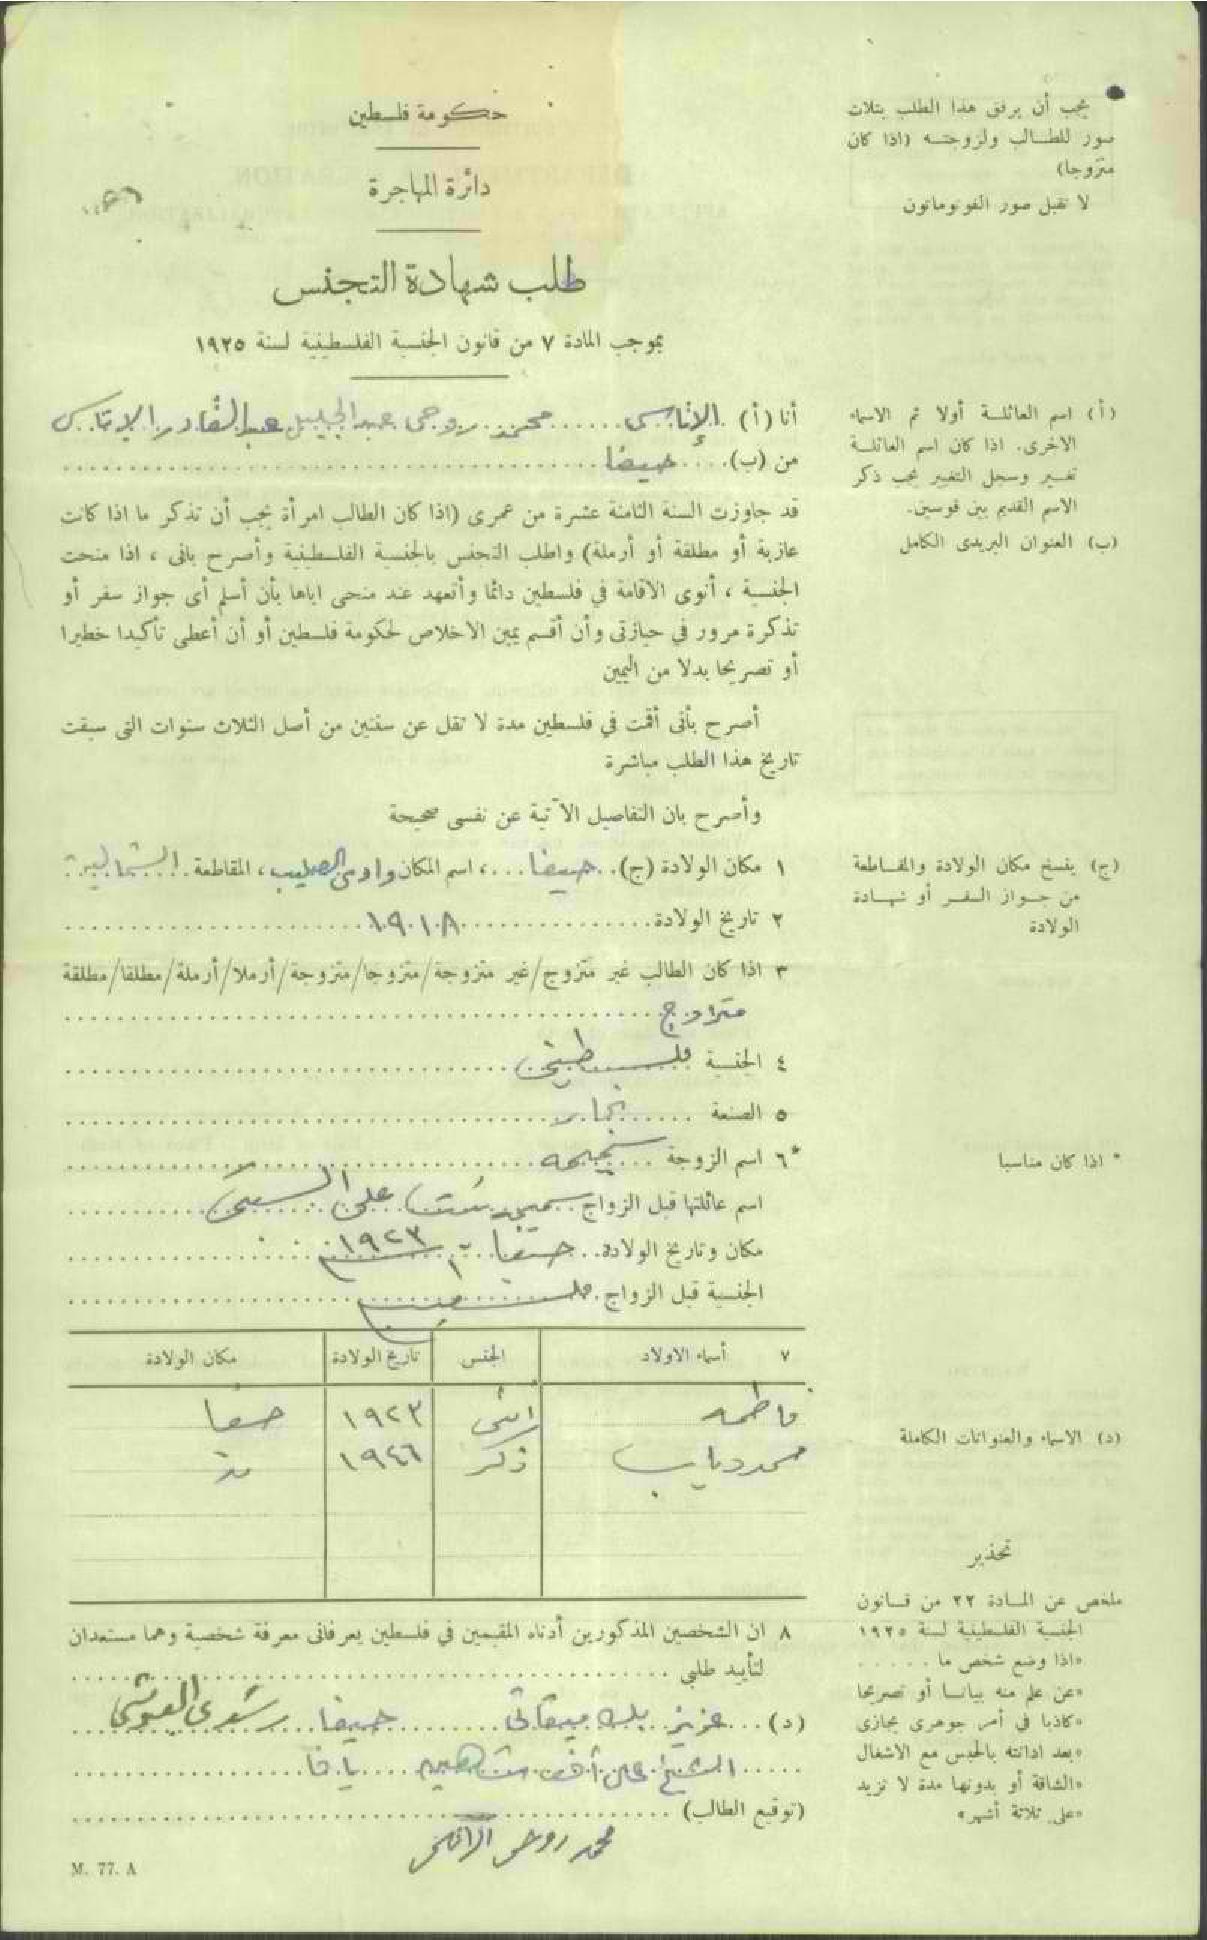 حكومة فلسطين
دائرة المهاجرة
طلب شهادة التجنس
بموجب المادة ٧ من قانون الجنسية الفلسطينية لسنة ١٩٢٥
يجب أن يرفق هذا الطلب بثلاث
صور للطالب ولزوجته (اذا كان
متزوجا)
لا تقبل صور الفوتوماتون
أنا (أ) الاتاسي محمد روحي عبد الجليل عبد القادر الاتاسي
من (ب) حيفا
قد جاوزت السنة الثامنة عشرة من عمرى (اذا كان الطالب امرأة يجب أن تذكر ما اذا كانت
عازبة أو مطلقة أو أرملة) واطلب التجنس بالجنسية الفلسطينية وأصرح بانى ، اذا منحت
الجنسية ، أنوى الاقامة في فلسطين دائما وأتعهد عند منحى اياها بأن أسلم أى جواز سفر أو
تذكرة مرور في حيازتى وأن أقسم يمين الاخلاص لحكومة فلسطين أو أن أعطى تأكيدا خطيرا
أو تصريحا بدلا من اليمين
أصرح بأنى أقمت في فلسطين مدة لا تقل عن سنتين من أصل الثلاث سنوات التى سبقت
تاريخ هذا الطلب مباشرة
وأصرح بان التفاصيل الآتية عن نفسى صحيحة
١ مكان الولادة (ج) حيفا ، اسم المكان وادى الصليب ، المقاطعة الشمالية
٢ تاريخ الولادة ١٩٠١٨
٣ اذا كان الطالب غير متزوج/غير متزوجة/متزوجا/متزوجة/أرملا/أرملة/مطلقا/مطلقة
متزاوج
٤ الجنسية فلسطيني
٥ الصنعة نجار
*٦ اسم الزوجة
اسم عائلتها قبل الزواج بنت علي
مكان وتاريخ الولادة حيفا ١٩٢٣
الجنسية قبل الزواج
٧ أسماء الاولاد الجنس تاريخ الولادة مكان الولادة
فاطمه انثى ١٩٢٣ حيفا
محمد دياب ذكر ١٩٤٦
٨ ان الشخصين المذكورين أدناه المقيمين في فلسطين يعرفانى معرفة شخصية وهما مستعدان
لتأييد طلبي
(د) عزيز بك ميقاتي حيفا رشدى
الشيخ يافا
(توقيع الطالب)
محمد روحي الاتاسي
M. 77. A
(أ) اسم العائلة أولا ثم الاسماء
الاخرى. اذا كان اسم العائلة
تغير وسجل التغيير يجب ذكر
الاسم القديم بين قوسين.
(ب) العنوان البريدى الكامل
(ج) ينسخ مكان الولادة والمقاطعة
من جواز السفر أو شهادة
الولادة
* اذا كان مناسبا
(د) الاسماء والعنوانات الكاملة
تحذير
ملخص عن المادة ٢٢ من قانون
الجنسية الفلسطينية لسنة ١٩٢٥
«اذا وضع شخص ما .....
«عن علم منه بيانا أو تصريحا
«كاذبا في أمر جوهرى يجازى
«بعد ادانته بالحبس مع الاشغال
«الشاقة أو بدونها مدة لا تزيد
«على ثلاثة أشهر»